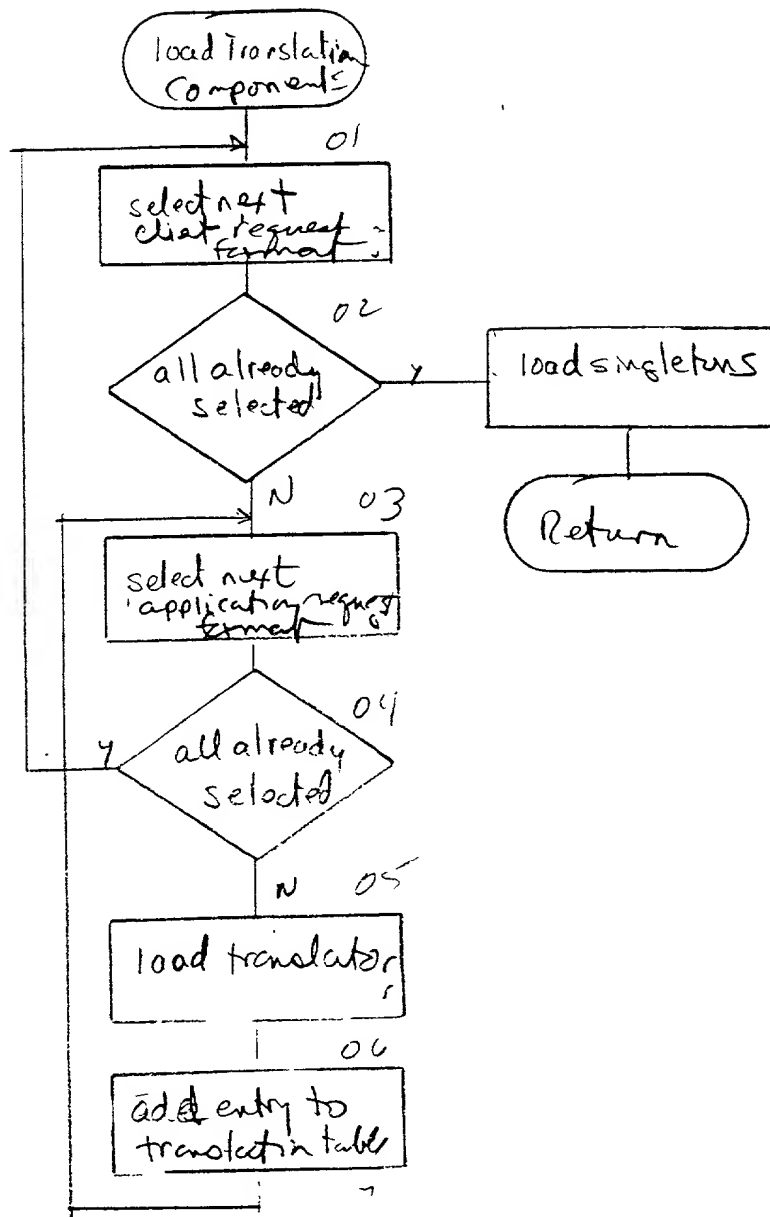 load Translation
Components
01
select next
client request
format
02
all already
selected
Y
load singletons
Return
N
03
select next
application request
format
04
all already
selected
Y
N
05
load translator
06
add entry to
translation table